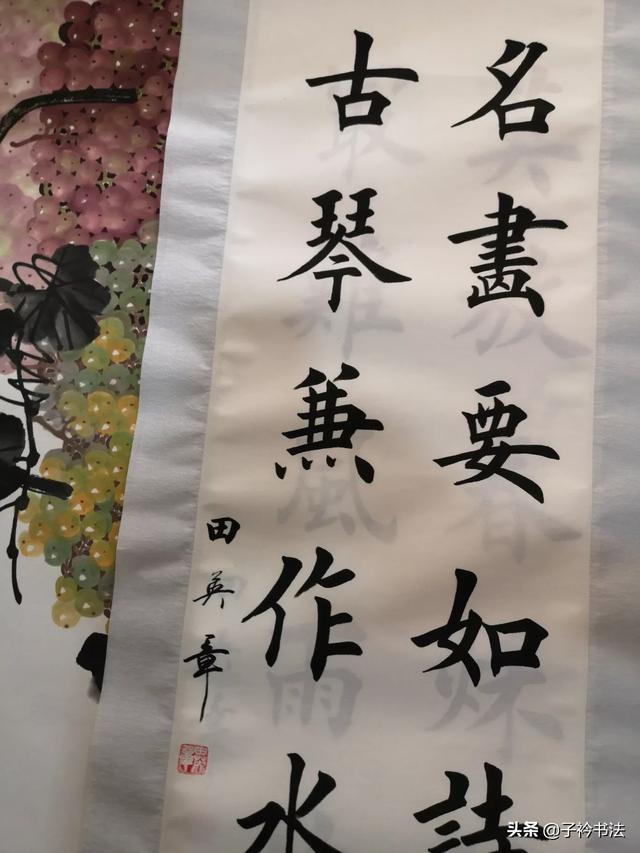 名畫要如詩
古琴兼作水
田英章
头条 @子衿书法